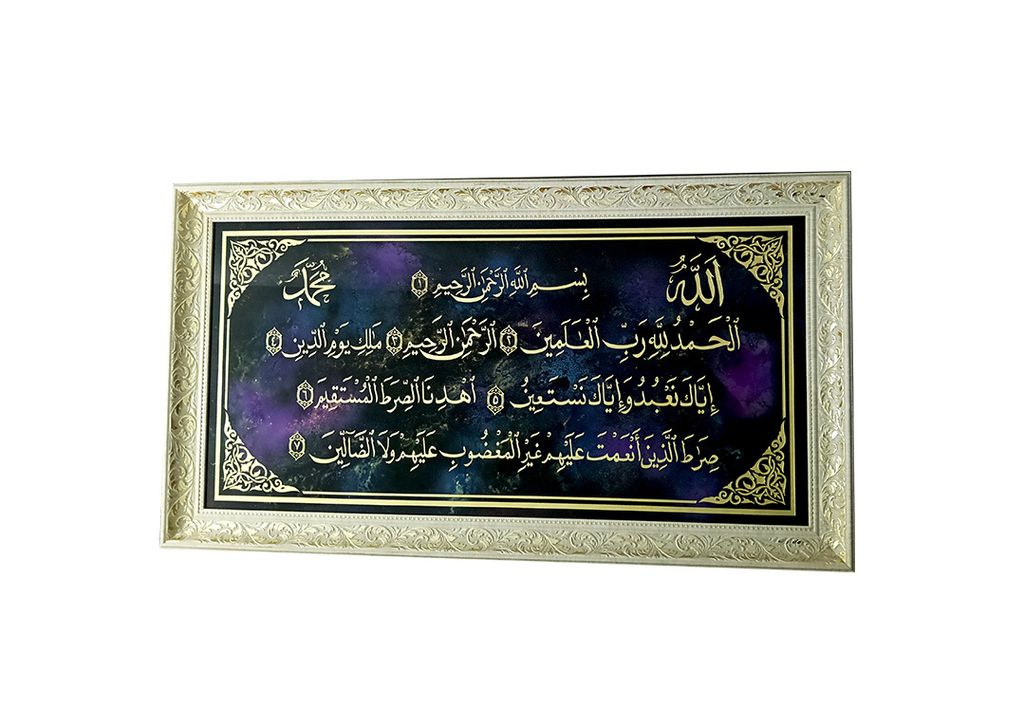 ٱللَّهُ بِسْمِ ٱللَّهِ ٱلرَّحْمَٰنِ ٱلرَّحِيمِ ١ مُحَمَّد
ٱلْحَمْدُ لِلَّهِ رَبِّ ٱلْعَٰلَمِينَ ٢ ٱلرَّحْمَٰنِ ٱلرَّحِيمِ ٣ مَٰلِكِ يَوْمِ ٱلدِّينِ ٤
إِيَّاكَ نَعْبُدُ وَإِيَّاكَ نَسْتَعِينُ ٥ ٱهْدِنَا ٱلصِّرَٰطَ ٱلْمُسْتَقِيمَ ٦
صِرَٰطَ ٱلَّذِينَ أَنْعَمْتَ عَلَيْهِمْ غَيْرِ ٱلْمَغْضُوبِ عَلَيْهِمْ وَلَا ٱلضَّآلِّينَ ٧